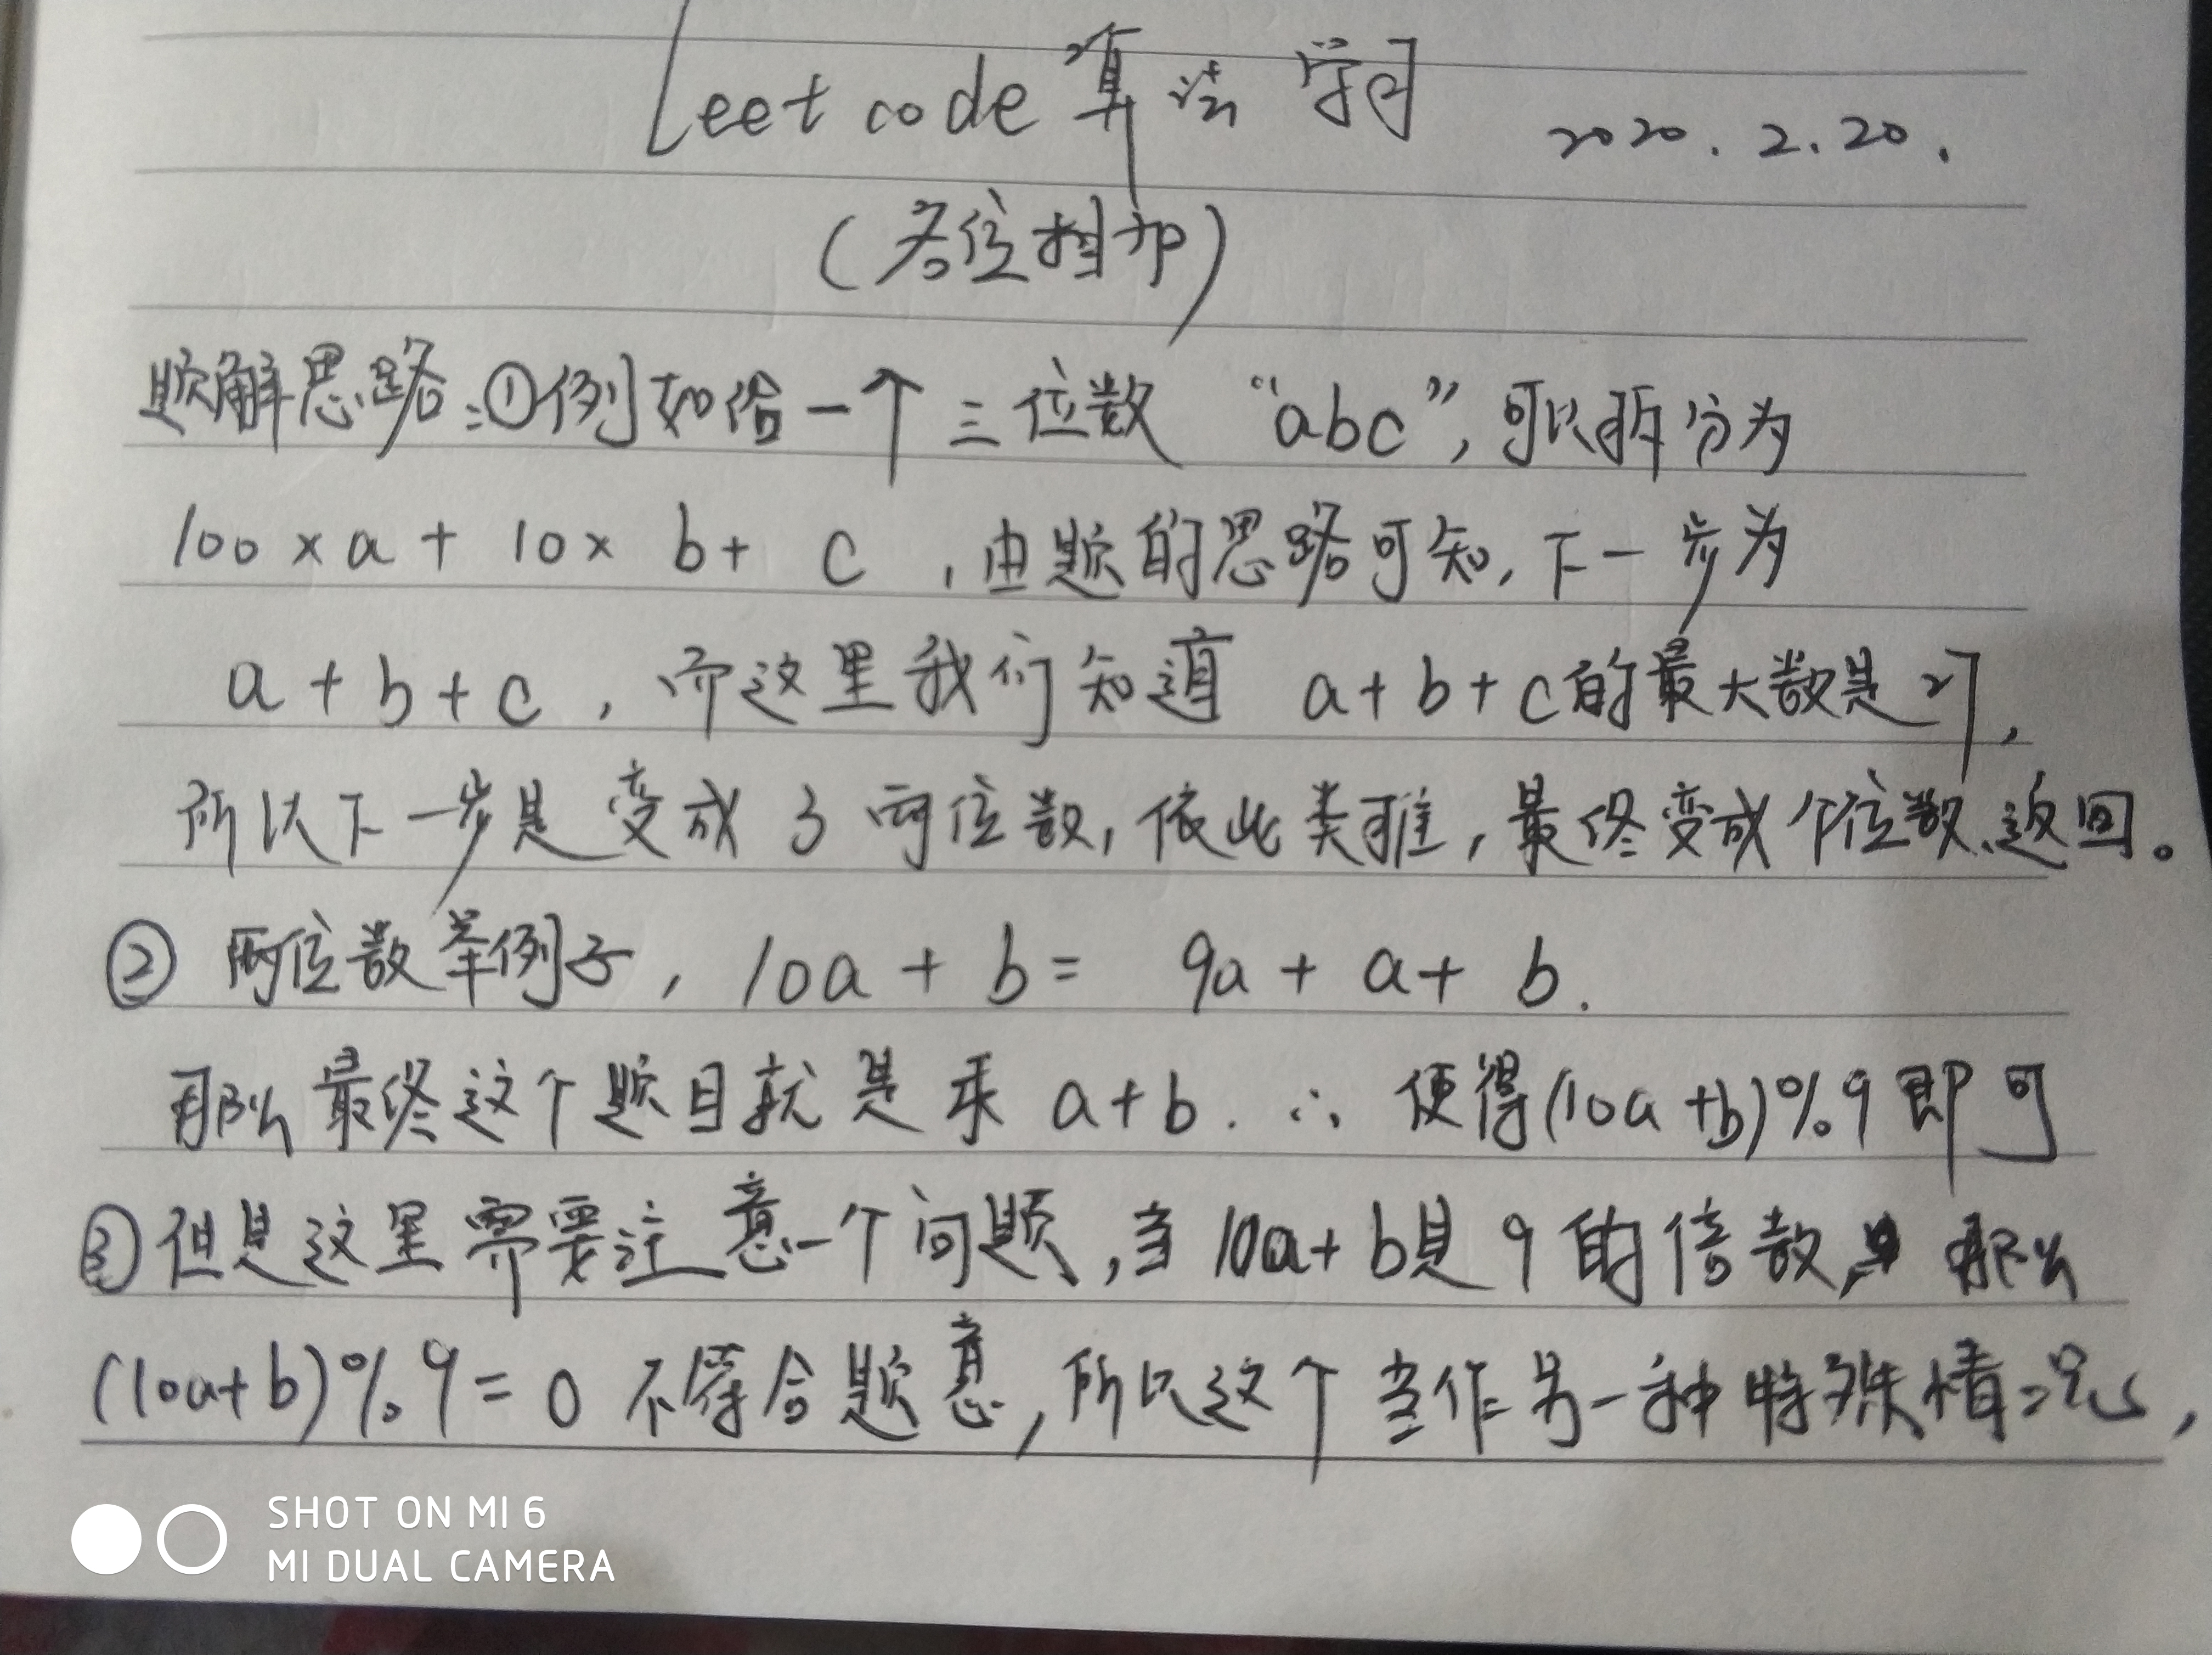 Leetcode算法学习 2020.2.20.
(各位相加)
题解思路:①例如给一个三位数 “abc”,可以拆分为
100×a+10×b+c,由题的思路可知,下一步为
a+b+c,而这里我们知道 a+b+c的最大数是27,
所以下一步是变成了两位数,依此类推,最终变成个位数返回。
② 两位数举例子,10a+b= 9a+a+b.
那么最终这个题目就是求 a+b. ∴ 使得(10a+b)%9即可
③但是这里需要注意一个问题,当10a+b是9的倍数, 那么
(10a+b)%9=0 不符合题意,所以这个当作另一种特殊情况,
SHOT ON MI 6
MI DUAL CAMERA